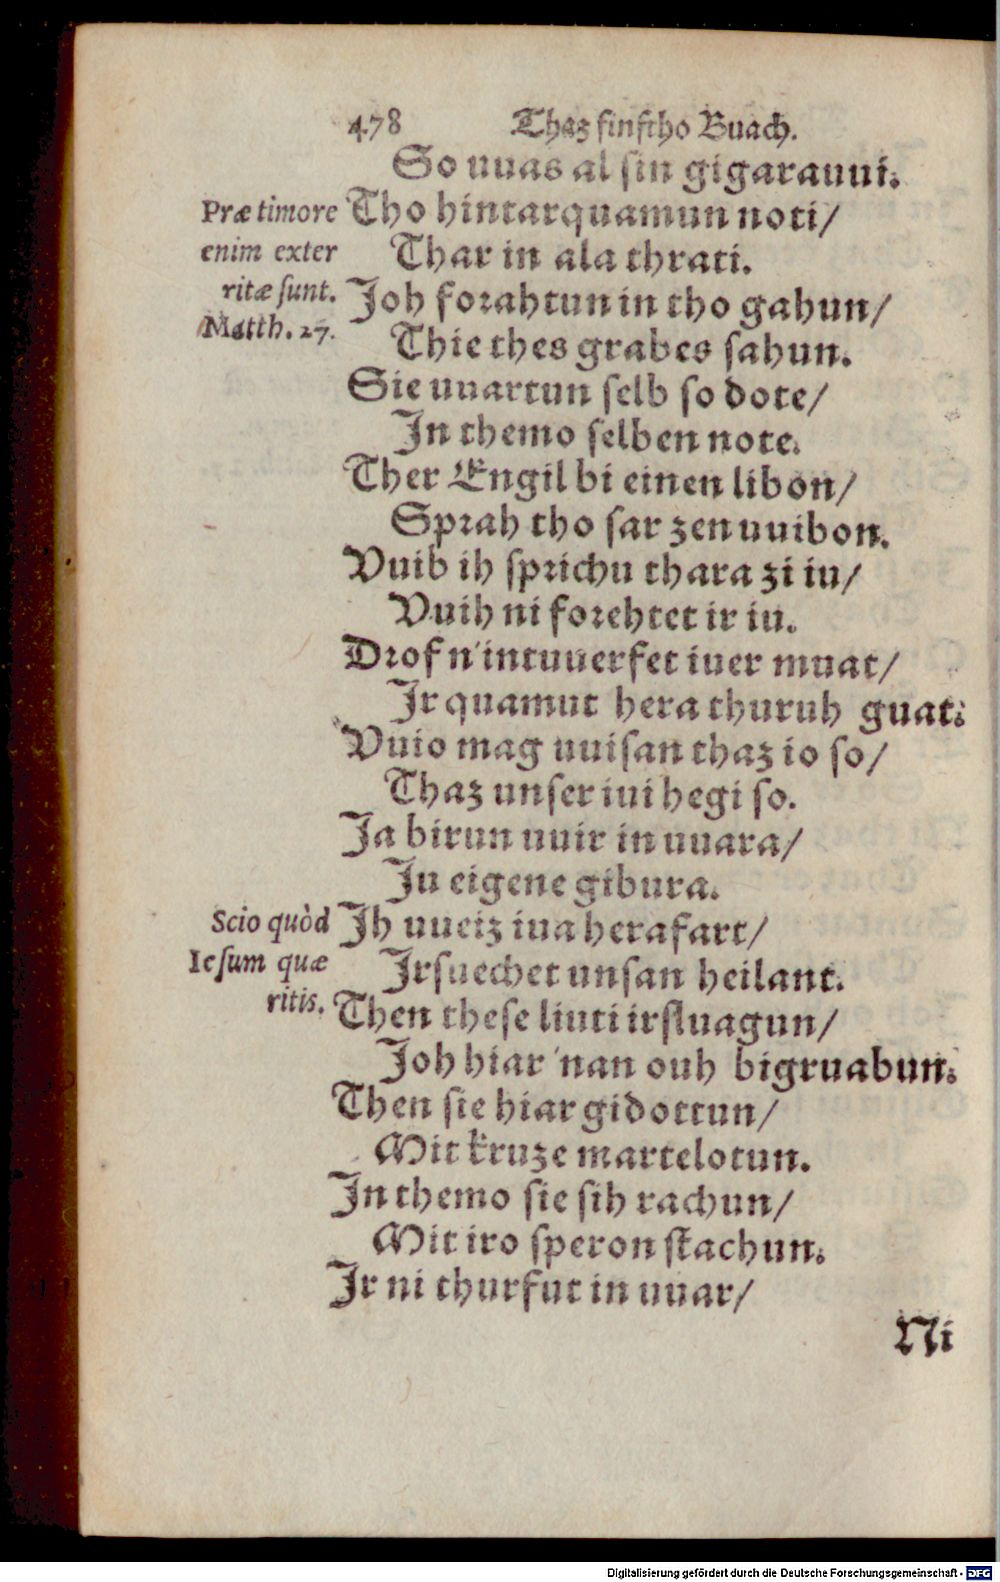 478 Thaz finftho Buach.
So uuas al sin gigarauui.
Præ timore
enim exter
ritæ sunt.
Matth. 27.
Tho hintarquamun noti/
Thar in ala thrati.
Joh forahtun in tho gahun/
Thie thes grabes sahun.
Sie uuartun selb so dote/
In themo selben note.
Ther Engil bi einen libon/
Sprah tho sar zen uuibon.
Vuib ih sprichu thara zi iu/
Vuih ni forehtet ir iu.
Drof n'intuuerfet iuer muat/
Ir quamut hera thuruh guat.
Vuio mag uuisan thaz io so/
Thaz unser iui hegi so.
Ja birun uuir in uuara/
Iu eigene gibura.
Scio quòd
Iesum quæ
ritis.
Ih uueiz iua herafart/
Ir suechet unsan heilant.
Then these liuti irsluagun/
Joh hiar 'nan ouh bigruabun.
Then sie hiar gidottun/
Mit kruze martelotun.
In themo sie sih rachun/
Mit iro speron stachun.
Ir ni thurfut in uuar/
Ni
Digitalisierung gefördert durch die Deutsche Forschungsgemeinschaft - DFG